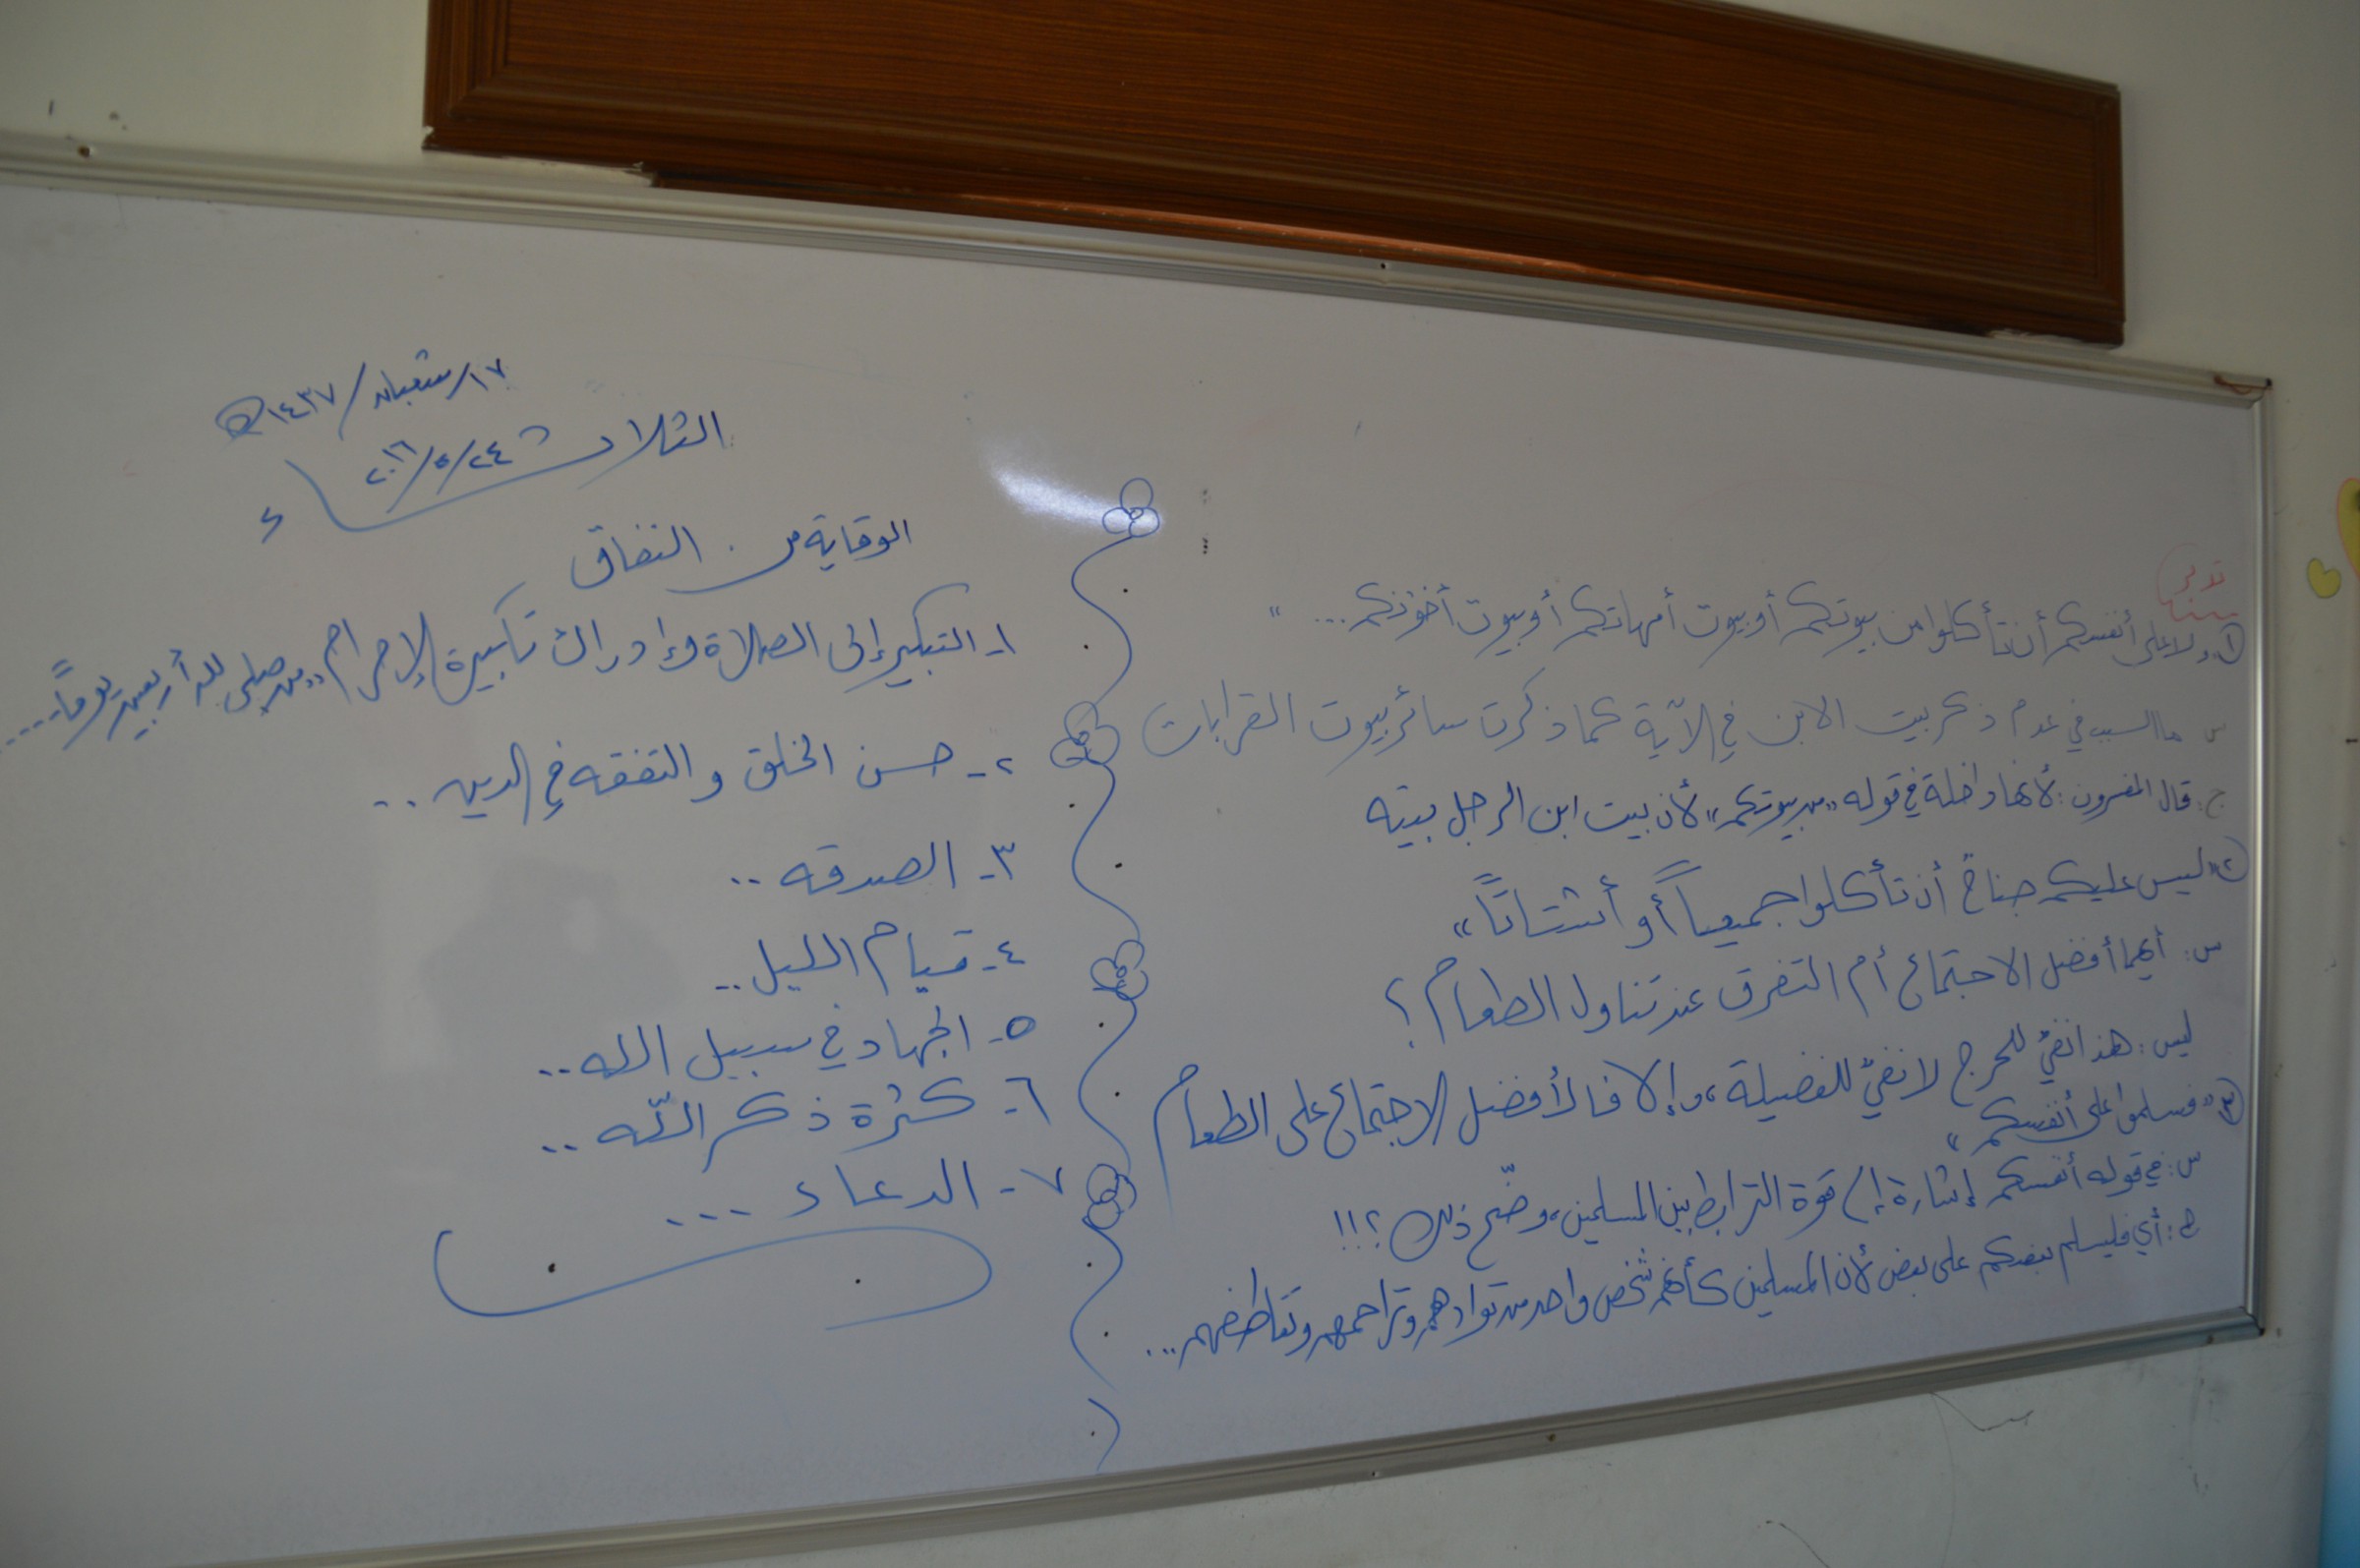 تدبر
① «ولا على أنفسكم أن تأكلوا من بيوتكم أو بيوت أمهاتكم أو بيوت أخوانكم... »
س ما السبب في عدم ذكر بيت الابن في الآية كما ذكرت سائر بيوت القرابات
ج: قال المفسرون: لأنها داخلة في قوله «من بيوتكم» لأن بيت ابن الرجل بيته
② «ليس عليكم جناحٌ أن تأكلوا جميعاً أو أشتاتاً»
س: أيهما أفضل الاجتماع أم التفرق عند تناول الطعام؟
ليس: هذا نفيٌ للحرج لا نفيٌ للفضيلة، وإلا فالأفضل الاجتماع على الطعام
③ «فسلموا على أنفسكم»
س: في قوله أنفسكم إشارة إلى قوة الترابط بين المسلمين، وضّح ذلك؟!!
ج: أي فليسلم بعضكم على بعض لأن المسلمين كأنهم شخص واحد من توادهم وتراحمهم وتعاطفهم...
١٧/شعبان/١٤٣٧هـ
الثلاثاء
٢٠١٦/٥/٢٤
الوقاية من النفاق
١- التبكير إلى الصلاة وإدراك تكبيرة الإحرام «من صلى لله أربعين يوماً....
٢- حسن الخلق والتفقه في الدين ..
٣- الصدقه ..
٤- قيام الليل ..
٥- الجهاد في سبيل الله ..
٦- كثرة ذكر اللّه ..
٧- الدعاء ...